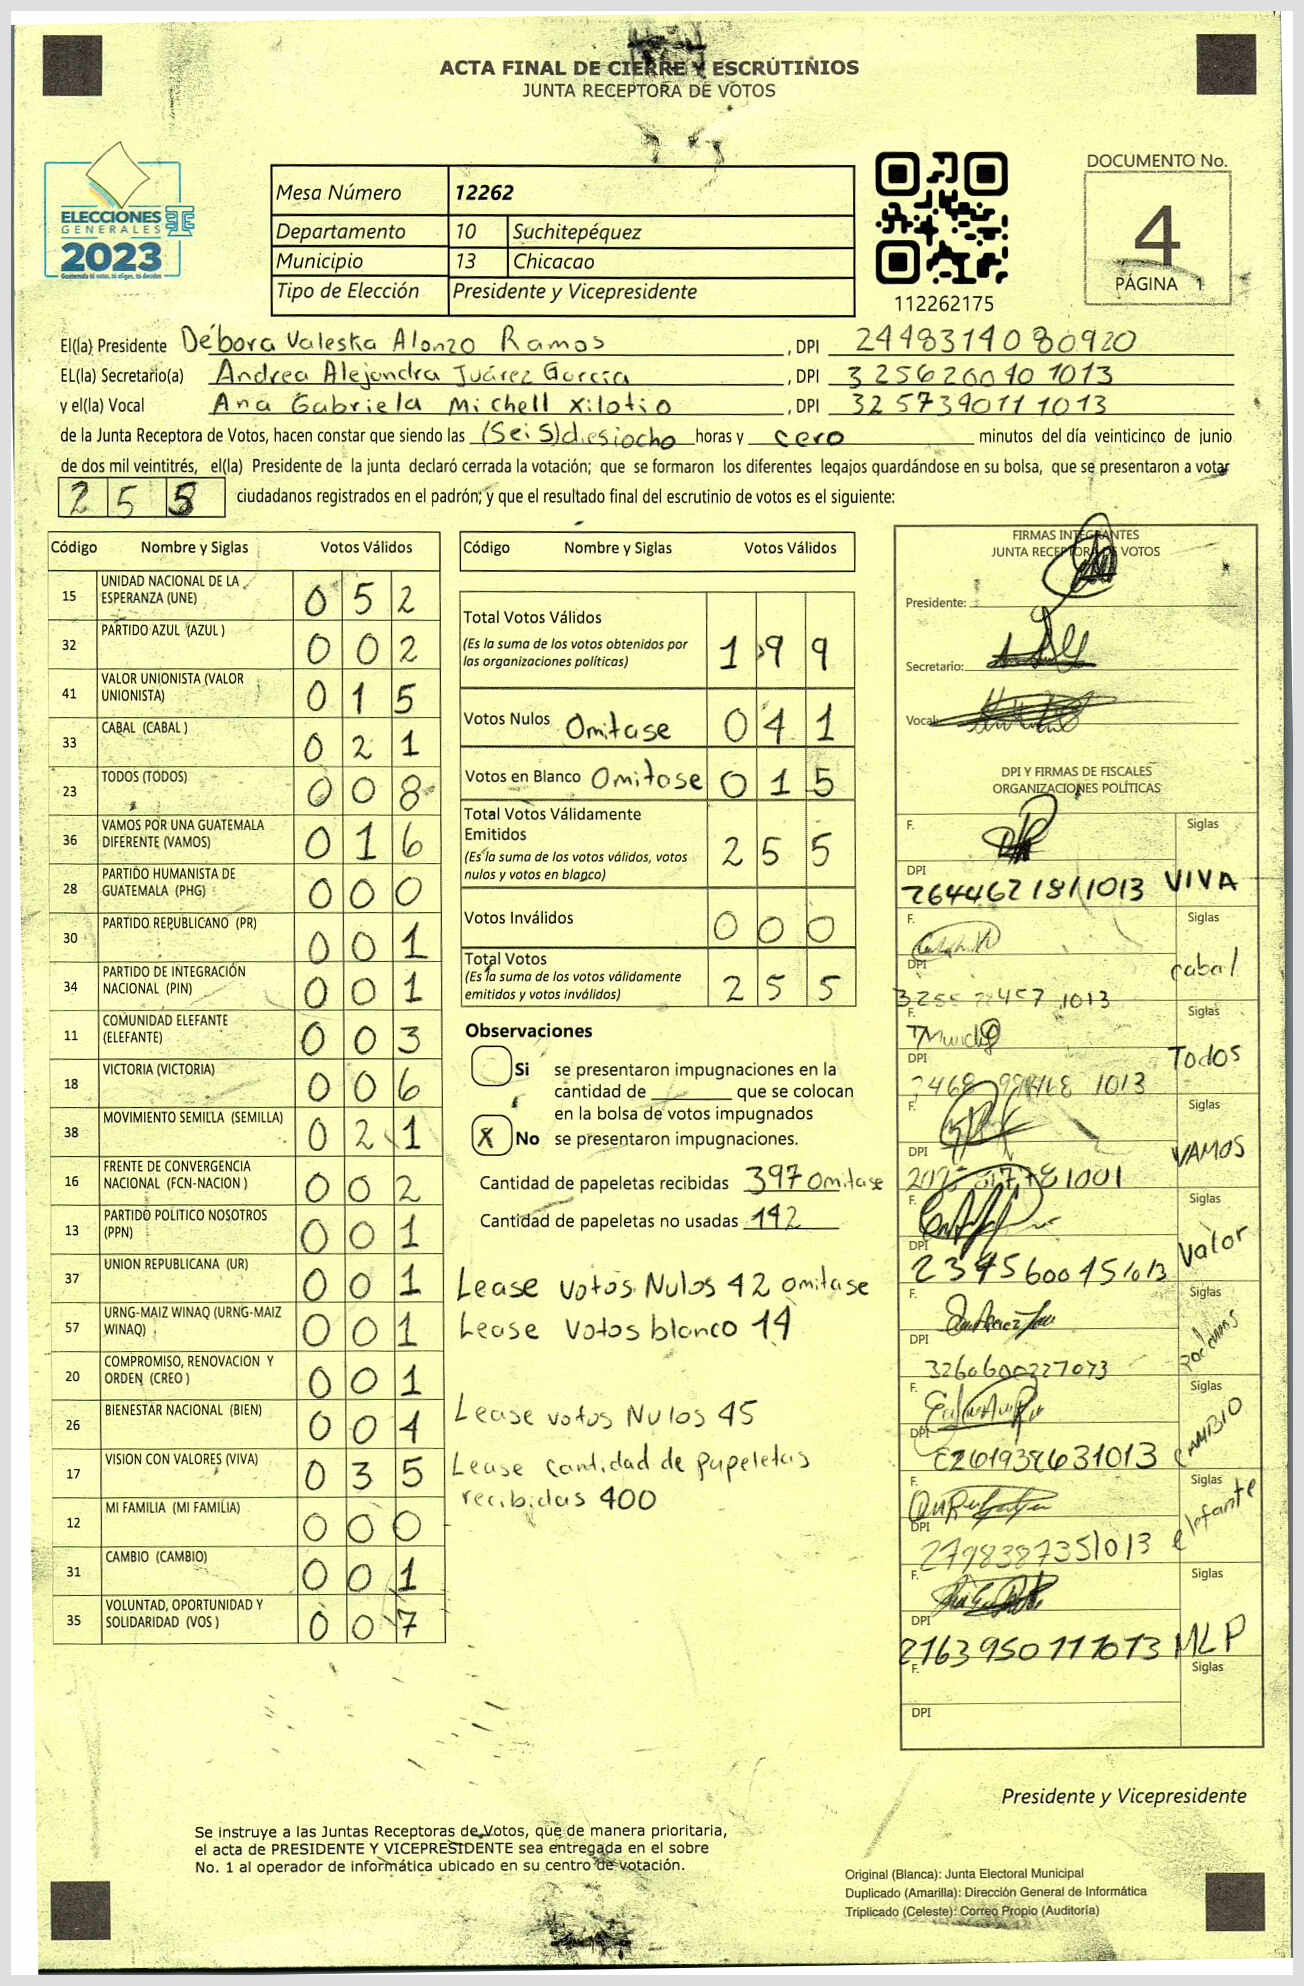 ACTA FINAL DE CIERRE Y ESCRUTINIOS
JUNTA RECEPTORA DE VOTOS
ELECCIONES
GENERALES
2023
Guatemala tú votas, tú eliges, tú decides
Mesa Número 12262
Departamento 10 Suchitepéquez
Municipio 13 Chicacao
Tipo de Elección Presidente y Vicepresidente
112262175
DOCUMENTO No.
4
PÁGINA 1
El(la) Presidente Débora Valeska Alonzo Ramos, DPI 2448314080920
EL(la) Secretario(a) Andrea Alejandra Juárez García, DPI
y el(la) Vocal Ana Gabriela Michell Xilotio, DPI 3257390111013
de la Junta Receptora de Votos, hacen constar que siendo las (Seis)diesiocho horas y cero minutos del día veinticinco de junio
de dos mil veintitrés, el(la) Presidente de la junta declaró cerrada la votación; que se formaron los diferentes legajos guardándose en su bolsa, que se presentaron a votar
255 ciudadanos registrados en el padrón; y que el resultado final del escrutinio de votos es el siguiente:
Código Nombre y Siglas Votos Válidos
15 UNIDAD NACIONAL DE LA ESPERANZA (UNE) 052
32 PARTIDO AZUL (AZUL ) 002
41 VALOR UNIONISTA (VALOR UNIONISTA) 015
33 CABAL (CABAL ) 021
23 TODOS (TODOS) 008
36 VAMOS POR UNA GUATEMALA DIFERENTE (VAMOS) 016
28 PARTIDO HUMANISTA DE GUATEMALA (PHG) 000
30 PARTIDO REPUBLICANO (PR) 001
34 PARTIDO DE INTEGRACIÓN NACIONAL (PIN) 001
11 COMUNIDAD ELEFANTE (ELEFANTE) 003
18 VICTORIA (VICTORIA) 006
38 MOVIMIENTO SEMILLA (SEMILLA) 021
16 FRENTE DE CONVERGENCIA NACIONAL (FCN-NACION ) 002
13 PARTIDO POLITICO NOSOTROS (PPN) 001
37 UNION REPUBLICANA (UR) 001
57 URNG-MAIZ WINAQ (URNG-MAIZ WINAQ) 001
20 COMPROMISO, RENOVACION Y ORDEN (CREO ) 001
26 BIENESTAR NACIONAL (BIEN) 004
17 VISION CON VALORES (VIVA) 035
12 MI FAMILIA (MI FAMILIA) 000
31 CAMBIO (CAMBIO) 001
35 VOLUNTAD, OPORTUNIDAD Y SOLIDARIDAD (VOS ) 007
Código Nombre y Siglas Votos Válidos
Total Votos Válidos
(Es la suma de los votos obtenidos por las organizaciones políticas) 199
Votos Nulos Omitase 041
Votos en Blanco Omitase 015
Total Votos Válidamente Emitidos
(Es la suma de los votos válidos, votos nulos y votos en blanco) 255
Votos Inválidos 000
Total Votos
(Es la suma de los votos válidamente emitidos y votos inválidos) 255
Observaciones
Si se presentaron impugnaciones en la
cantidad de que se colocan
en la bolsa de votos impugnados
X No se presentaron impugnaciones.
Cantidad de papeletas recibidas 397 omitase
Cantidad de papeletas no usadas 142
Lease votos Nulos 42 omitase
Lease votos blanco 14
Lease votos Nulos 45
Lease cantidad de papeletas
recibidas 400
FIRMAS INTEGRANTES
JUNTA RECEPTORA DE VOTOS
Presidente:
Secretario:
Vocal:
DPI Y FIRMAS DE FISCALES
ORGANIZACIONES POLÍTICAS
F. Siglas
DPI 2644621811013 VIVA
F. Siglas
DPI cabal
F. Siglas
DPI Todos
F. Siglas
DPI VAMOS
F. Siglas
DPI Valor
F. Siglas
DPI Podemos
F. Siglas
DPI CAMBIO
F. Siglas
DPI 2798387351013 elefante
F. Siglas
DPI 2163950111013 MLP
F. Siglas
DPI
Presidente y Vicepresidente
Se instruye a las Juntas Receptoras de Votos, que de manera prioritaria,
el acta de PRESIDENTE Y VICEPRESIDENTE sea entregada en el sobre
No. 1 al operador de informática ubicado en su centro de votación.
Original (Blanca): Junta Electoral Municipal
Duplicado (Amarilla): Dirección General de Informática
Triplicado (Celeste): Correo Propio (Auditoría)